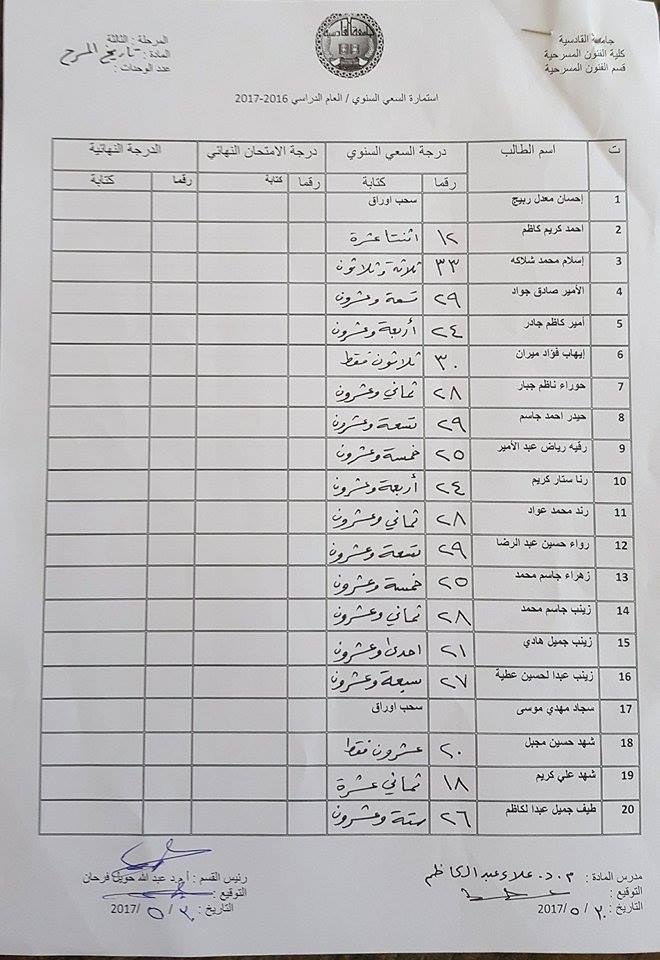 جامعة القادسية
كلية الفنون المسرحية
قسم الفنون المسرحية
جامعة القادسية
المرحلة : الثالثة
المادة : تاريخ المسرح
عدد الوحدات :
استمارة السعي السنوي / العام الدراسي 2016-2017
ت اسم الطالب درجة السعي السنوي درجة الامتحان النهائي الدرجة النهائية
رقما كتابة رقما كتابة رقما كتابة
1 إحسان معدل ربيج سحب اوراق
2 احمد كريم كاظم ١٢ اثنتا عشرة
3 إسلام محمد شلاكه ٣٣ ثلاثة وثلاثون
4 الأمير صادق جواد ٢٩ تسعة وعشرون
5 أمير كاظم جادر ٢٤ أربعة وعشرون
6 إيهاب فؤاد ميران ٣٠ ثلاثون فقط
7 حوراء ناظم جبار ٢٨ ثماني وعشرون
8 حيدر احمد جاسم ٢٩ تسعة وعشرون
9 رقيه رياض عبد الأمير ٢٥ خمسة وعشرون
10 رنا ستار كريم ٢٤ أربعة وعشرون
11 رند محمد عواد ٢٨ ثماني وعشرون
12 رواء حسين عبد الرضا ٢٩ تسعة وعشرون
13 زهراء جاسم محمد ٢٥ خمسة وعشرون
14 زينب جاسم محمد ٢٨ ثماني وعشرون
15 زينب جميل هادي ٢١ احدى وعشرون
16 زينب عبدا لحسين عطية ٢٧ سبعة وعشرون
17 سجاد مهدي موسى سحب اوراق
18 شهد حسين مجبل ٢٠ عشرون فقط
19 شهد علي كريم ١٨ ثماني عشرة
20 طيف جميل عبدا لكاظم ٢٦ ستة وعشرون
مدرس المادة : م.د. علاء عبد الكاظم
التوقيع :
التاريخ : ٣٠ / ٥ / 2017
رئيس القسم : أ.م.د عبد الله حويل فرحان
التوقيع :
التاريخ : ٣٠ / ٥ / 2017